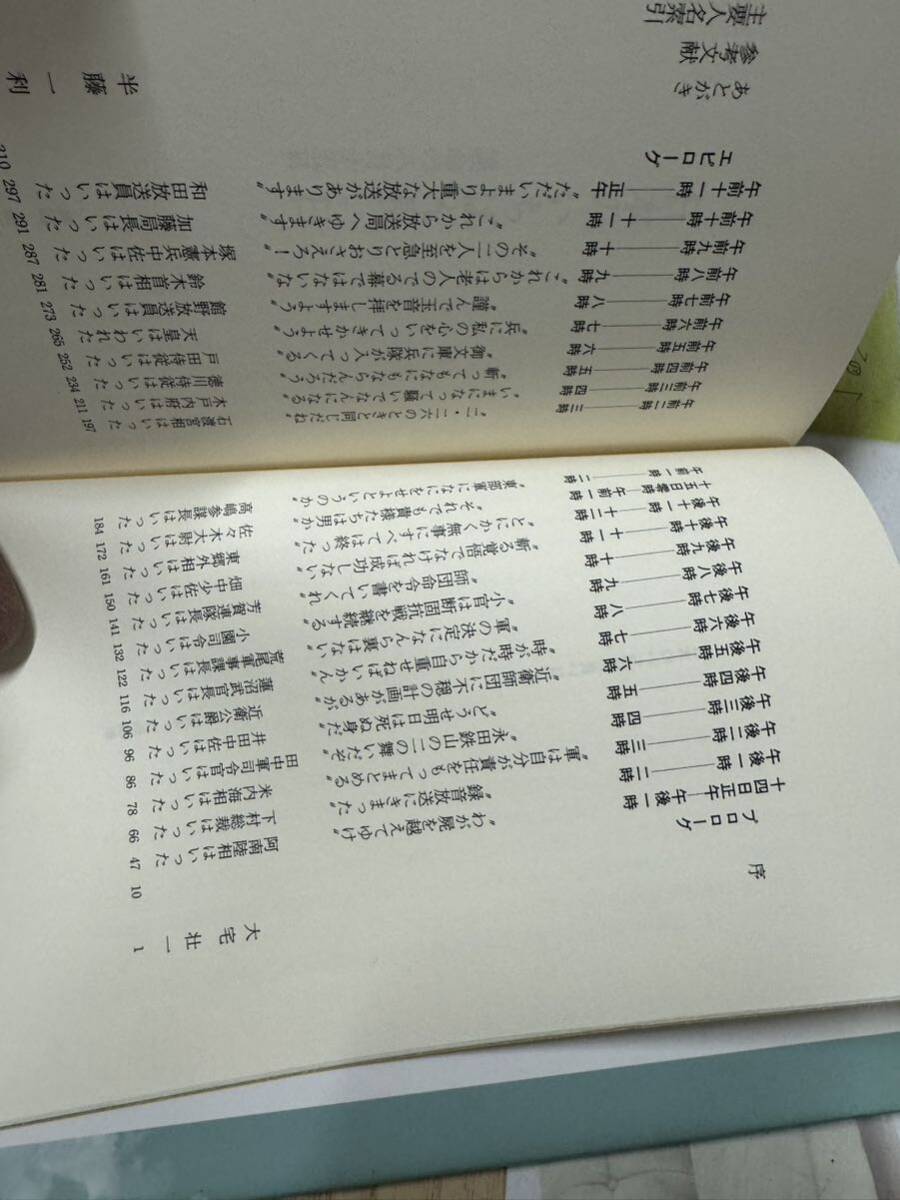 序 大宅壮一 1
プロローグ 10
十四日正午――午後一時 〝わが屍を越えてゆけ〟 阿南陸相はいった 47
午後一時――二時 〝録音放送にきまった〟 下村総裁はいった 66
午後二時――三時 〝軍は自分が責任をもってまとめる〟 米内海相はいった 78
午後三時――四時 〝永田鉄山の二の舞いだぞ〟 田中軍司令官はいった 86
午後四時――五時 〝どうせ明日は死ぬ身だ〟 井田中佐はいった 96
午後五時――六時 〝近衛師団に不穏の計画があるが〟 近衛公爵はいった 106
午後六時――七時 〝時が時だから自重せねばいかん〟 蓮沼武官長はいった 116
午後七時――八時 〝軍の決定になんら裏はない〟 荒尾軍事課長はいった 122
午後八時――九時 〝小官は断固抗戦を継続する〟 小園司令はいった 132
午後九時――十時 〝師団命令を書いてくれ〟 芳賀連隊長はいった 141
午後十時――十一時 〝斬る覚悟でなければ成功しない〟 畑中少佐はいった 150
午後十一時――十二時 〝とにかく無事にすべては終った〟 東郷外相はいった 161
十五日零時――午前一時 〝それでも貴様たちは男か〟 佐々木大尉はいった 172
午前一時――二時 〝東部軍になにをせよというのか〟 高嶋参謀長はいった 184
午前二時――三時 〝二・二六のときと同じだね〟 石渡宮相はいった 197
午前三時――四時 〝いまになって騒いでなんになる〟 木戸内府はいった 211
午前四時――五時 〝斬ってもなにもならんだろう〟 徳川侍従はいった 234
午前五時――六時 〝御文庫に兵隊が入ってくる〟 戸田侍従はいった 252
午前六時――七時 〝兵に私の心をいってきかせよう〟 天皇はいわれた 265
午前七時――八時 〝謹んで玉音を拝しますよう〟 館野放送員はいった 273
午前八時――九時 〝これからは老人のでる幕ではない〟 鈴木首相はいった 281
午前九時――十時 〝その二人を至急とりおさえろ!〟 塚本憲兵中佐はいった 287
午前十時――十一時 〝これから放送局へゆきます〟 加藤局長はいった 291
午前十一時――正午 〝ただいまより重大な放送があります〟 和田放送員はいった 297
エピローグ 310
あとがき 半藤一利
参考文献
主要人名索引